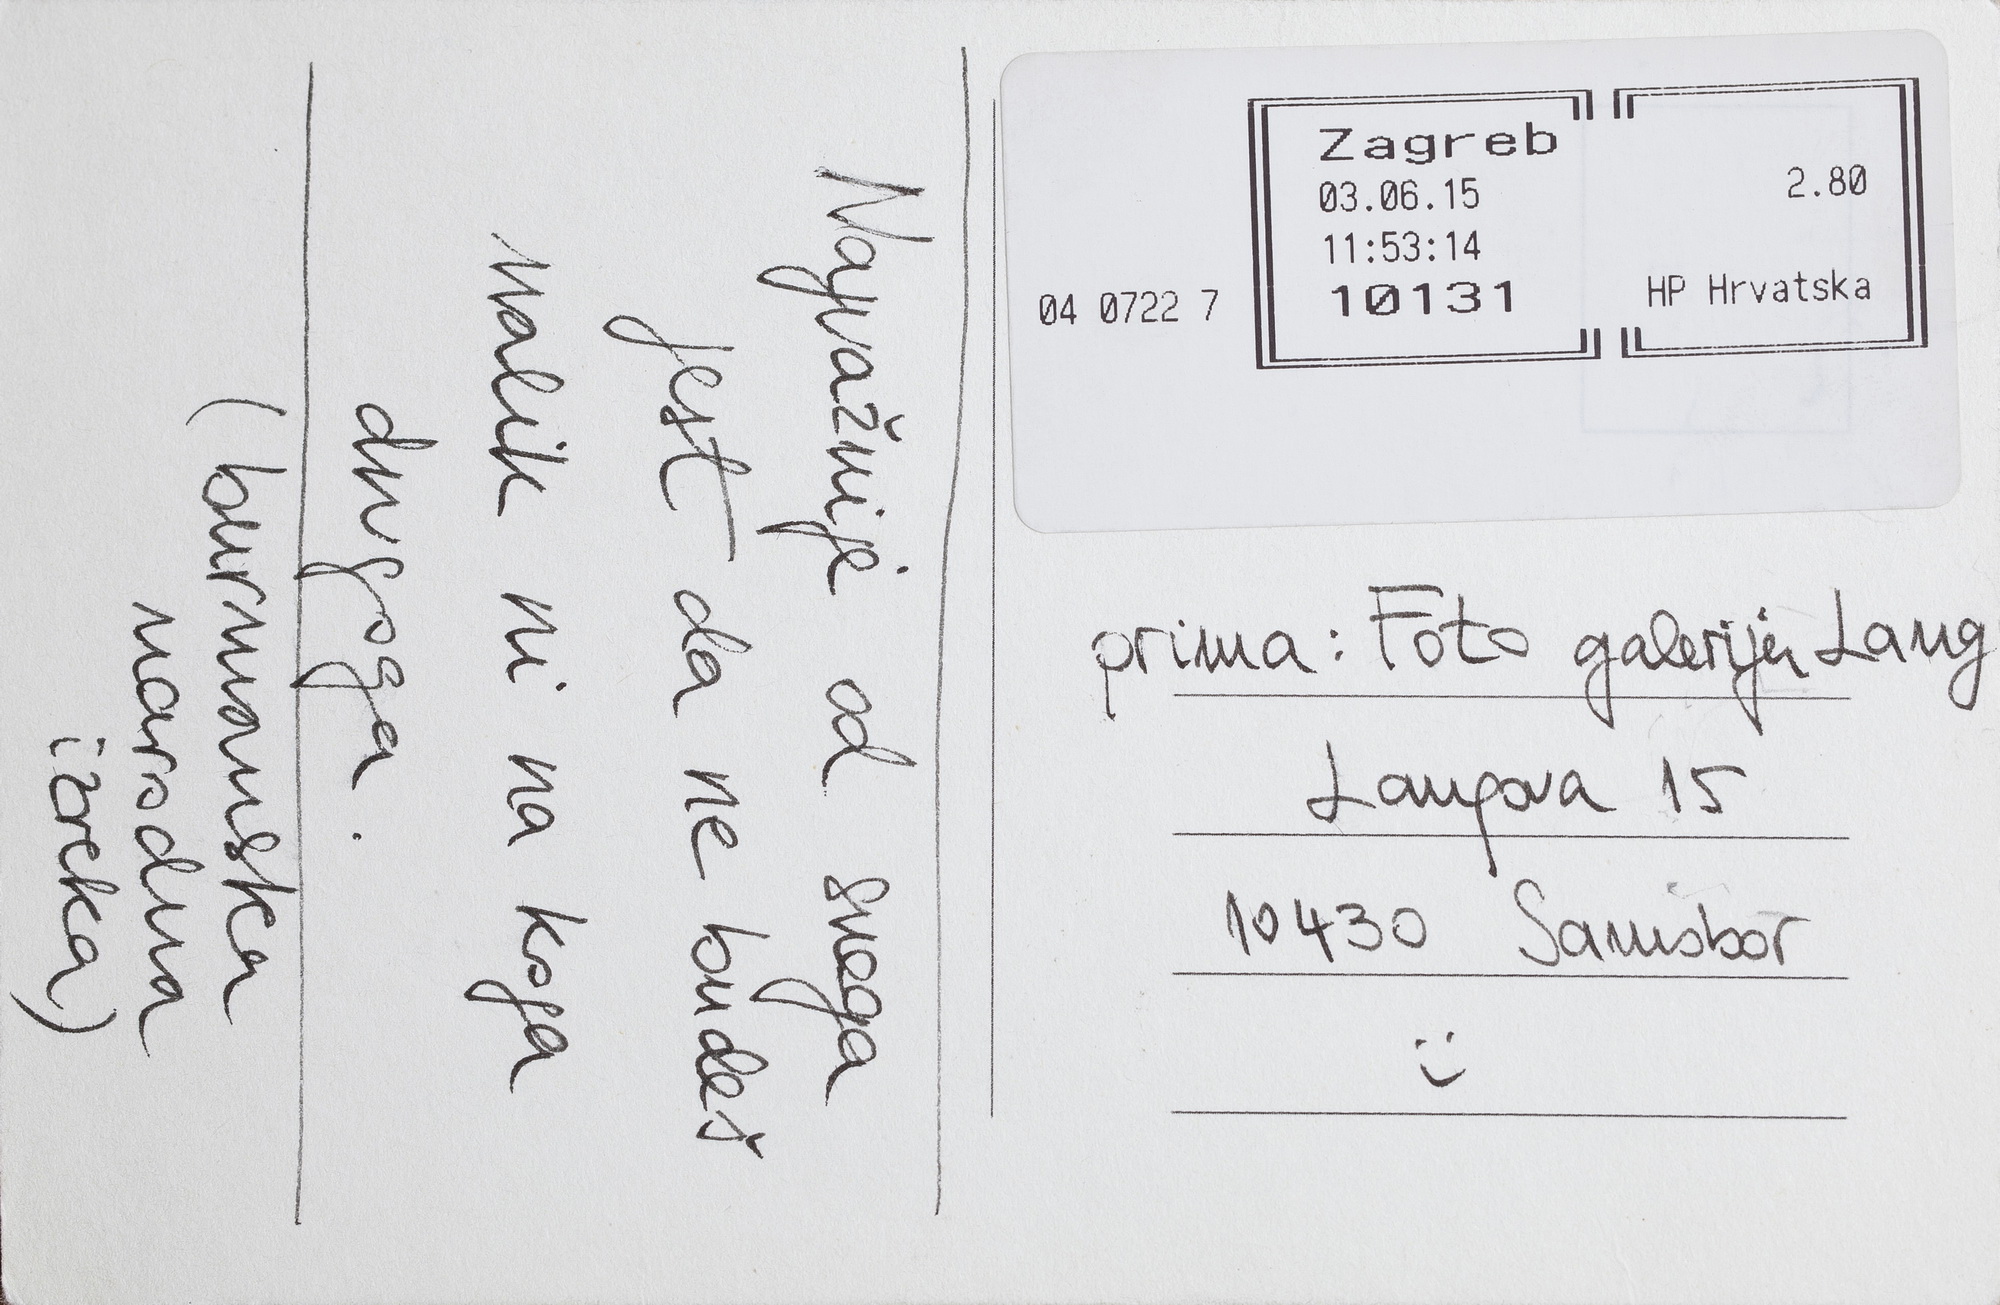 Najvažnije od svega
jest da ne budeš
nalik ni na koga
drugoga.
(burmanska
narodna
izreka)
Zagreb
03.06.15
11:53:14
10131
2.80
HP Hrvatska
04 0722 7
prima: Foto galerija Lang
Langova 15
10430 Samobor
:)